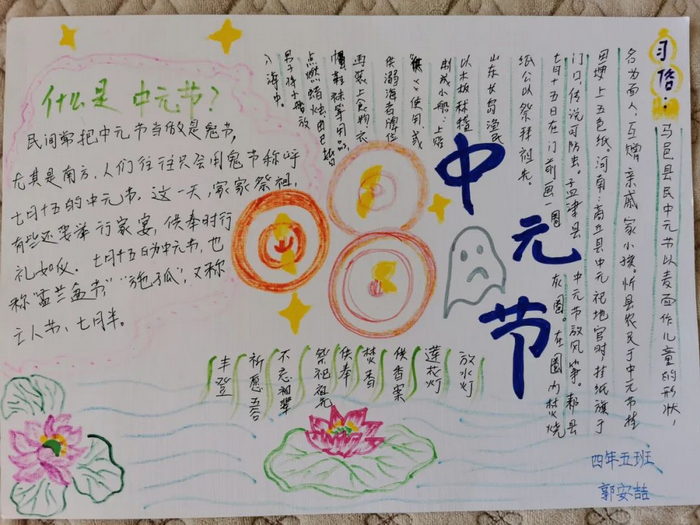 什么是 中元节？
民间常把中元节当做是鬼节，
尤其是南方，人们往往只会用鬼节称呼
七月十五的中元节。这一天，家家祭祖，
有些还要举行家宴，供奉时行
礼如仪。七月十五日为中元节，也
称"盂兰盆节""施孤"，又称
亡人节、七月半。
中元节
习俗：
马邑县民中元节以麦面作儿童的形状，
名为面人，互赠亲戚家小孩。忻县农民于中元节挂
田埂上五色纸，河南：商丘县中元祀地官时挂纸旗于
门口，传说可防虫。孟津县 中元节放风筝。郏县
七月十五日在门前画一圈 灰圈。在圈内焚烧
纸公以祭拜祖先。
山东长岛渔民
以木板、秫秸
制成小船，上贴
供溺海者牌位
再装上食物、衣
帽、鞋袜等用品，
点燃蜡烛
男子将小船放
入海中。
放水灯
莲花灯
供香案
焚香
供奉
祭祀祖先
不忘祖辈
祈愿五谷
丰登
四年五班
郭安喆